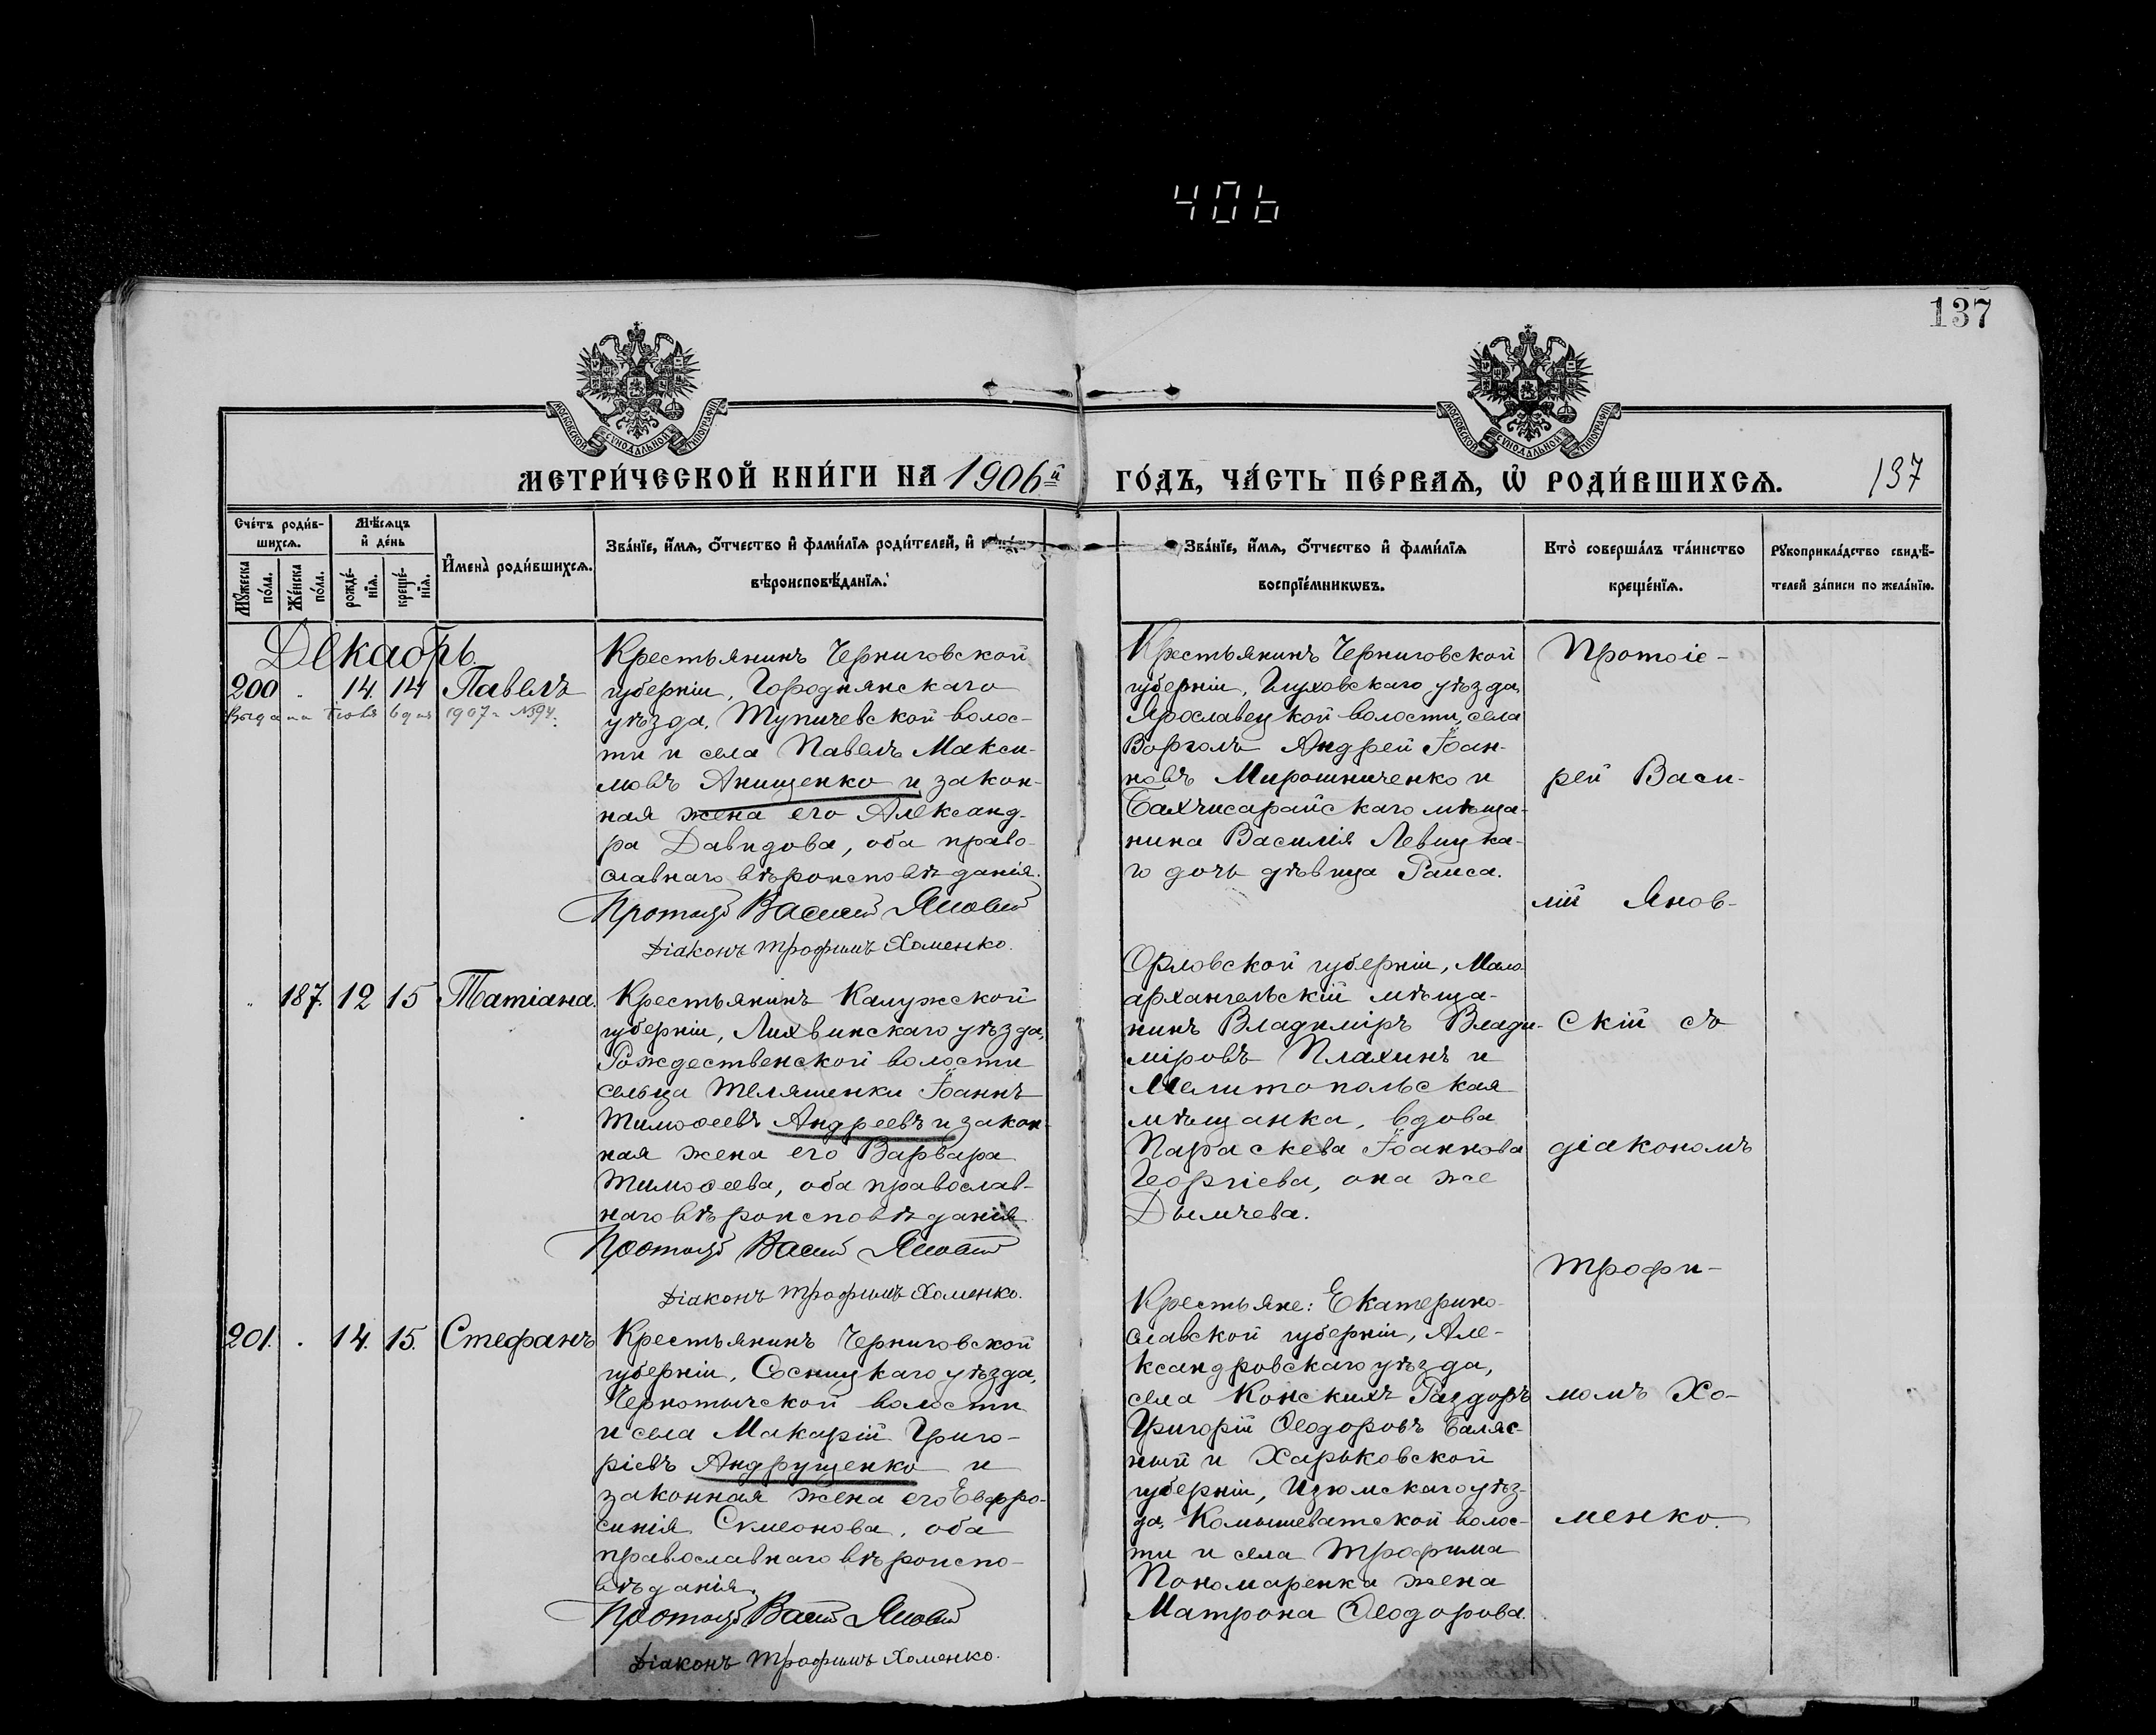 406
137
МОСКОВСКОЙ СѴНОДАЛЬНОЙ ТИПОГРАФІИ
МОСКОВСКОЙ СѴНОДАЛЬНОЙ ТИПОГРАФІИ
МЕТРИ́ЧЕСКОЙ КНИ́ГИ НА 1906й
ГО́ДЪ, ЧА́СТЬ ПЕ́РВАѦ, Ѡ҆ РОДИ́ВШИХСѦ.
137
Сче́тъ роди́в-
шихсѧ.
Мꙋ́жеска
по́ла.
Же́нска
по́ла.
Мѣ́сѧцъ
и҆ де́нь
рожде́-
нїѧ.
креще́-
нїѧ.
И҆мена̀ роди́вшихсѧ.
Зва́нїе, и҆́мѧ, ѻ҆́тчество и҆ фами́лїѧ роди́телей, и҆
вѣроисповѣ́данїѧ.
Зва́нїе, и҆́мѧ, ѻ҆́тчество и҆ фами́лїѧ
воспрїе́мникѡвъ.
Кто̀ соверша́лъ та́инство
креще́нїѧ.
Рꙋкоприкла́дство свидѣ́-
телей за́писи по жела́нїю.
Декабрь.
200 . 14. 14 Павелъ
1907 г. №94.
Крестьянинъ Черниговской
губерніи, Городнянскаго
уѣзда, Тупичевской волос-
ти и села Павелъ Макси-
мовъ Анищенко и закон-
ная жена его Александ-
ра Давидова, оба право-
славнаго вѣроисповѣданія.
Протоіер Василій Яновскій
Діаконъ Трофимъ Хоменко.
Крестьянинъ Черниговской
губерніи, Глуховскаго уѣзда,
Ярославецкой волости, села
Ворголъ Андрей Іоан-
новъ Мирошниченко и
Бахчисарайскаго мѣща-
нина Василія Левицка-
го дочь дѣвица Раиса.
" 187. 12 15 Татіана.
Крестьянинъ Калужской
губерніи, Лихвинскаго уѣзда,
Рождественской волости
сельца Теляшенки Іоаннъ
Тимоѳеевъ Андреевъ и закон-
ная жена его Варвара
Тимоѳеева, оба православ-
наго вѣроисповѣданія
Протоіер Василій Яновскій
Діаконъ Трофимъ Хоменко.
Орловской губерніи, Мало-
архангельскій мѣща-
нинъ Владиміръ Влади-
міровъ Плахинъ и
Мелитопольская
мѣщанка, вдова
Параскева Іоаннова
Георгіева, она же
Дымчева.
201. . 14. 15. Стефанъ
Крестьянинъ Черниговской
губерніи, Сосницкаго уѣзда,
Чернотичской волости
и села Макарій Григо-
ріевъ Андрущенко и
законная жена его Евфро-
синія Симеонова, оба
православнаго вѣроиспо-
вѣданія.
Протоіер Василій Яновскій
Діаконъ Трофимъ Хоменко.
Крестьяне: Екатерино-
славской губерніи, Але-
ксандровскаго уѣзда,
села Конскихъ Раздоръ
Григорій Ѳеодоровъ Баляс-
ный и Харьковской
губерніи, Изюмскаго уѣз-
да, Комышеватской волос-
ти и села Трофима
Пономаренка жена
Матрона Ѳеодорова.
Протоіе-
рей Васи-
лій Янов-
скій съ
діакономъ
Трофи-
момъ Хо-
менко.